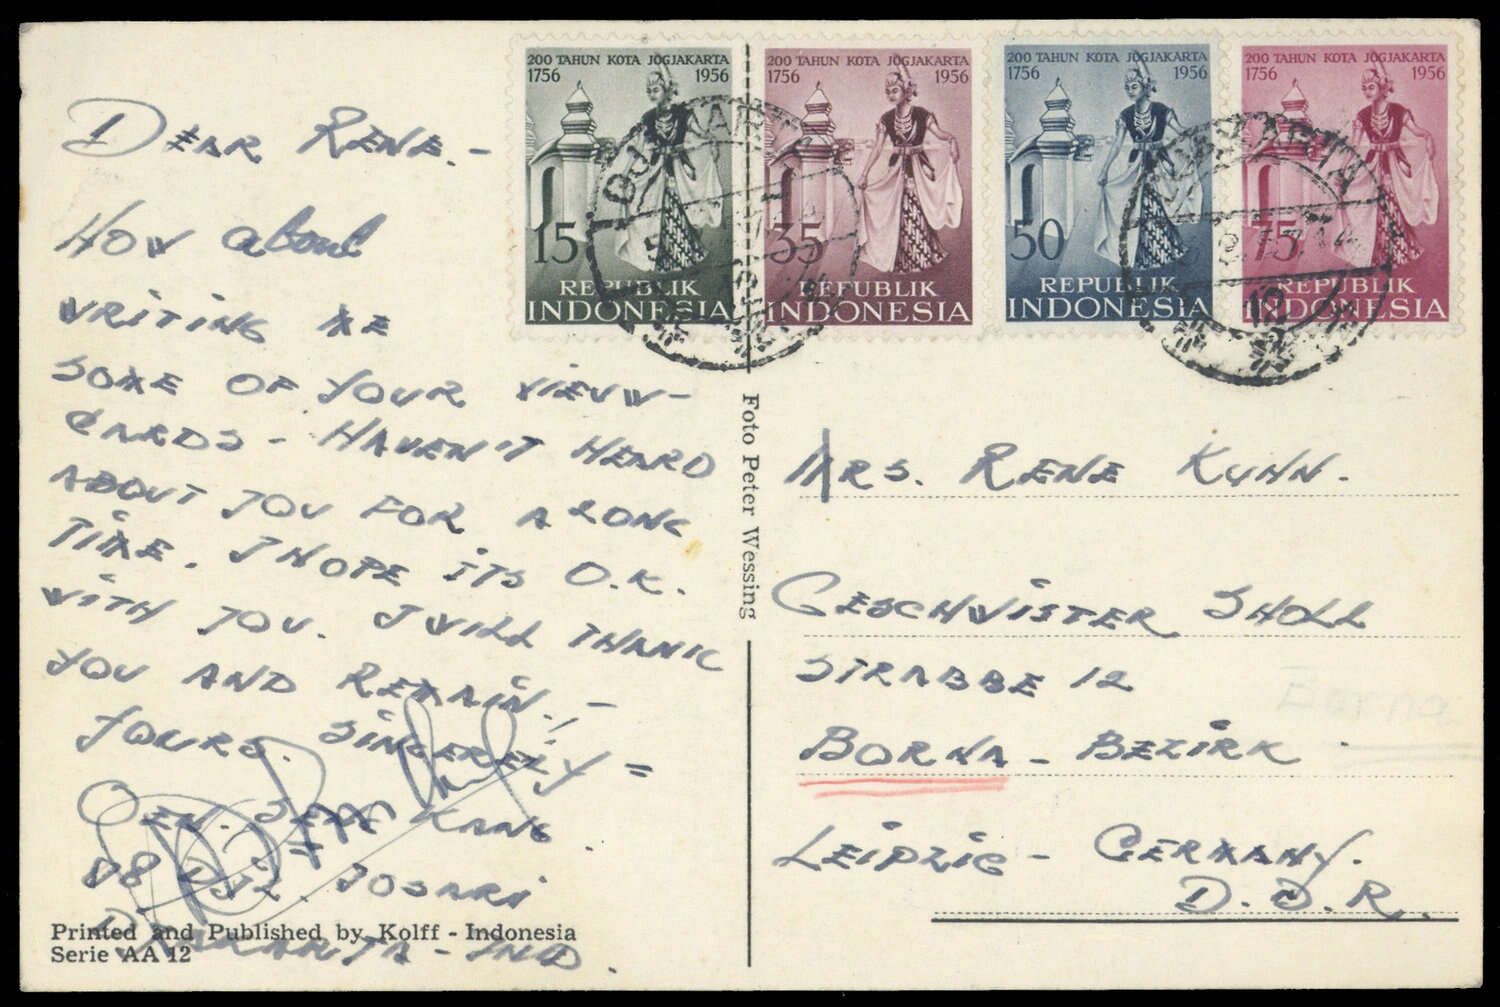 200 TAHUN KOTA JOGJAKARTA
1756 1956
15
REPUBLIK
INDONESIA
200 TAHUN KOTA JOGJAKARTA
1756 1956
35
REPUBLIK
INDONESIA
200 TAHUN KOTA JOGJAKARTA
1756 1956
50
REPUBLIK
INDONESIA
200 TAHUN KOTA JOGJAKARTA
1756 1956
75
REPUBLIK
INDONESIA
DEAR RENE.-
HOW about
WRITING ME
SOME OF YOUR VIEUW-
CARDS - HAVEN'T HEARD
ABOUT YOU FOR A LONG
TIME. I HOPE ITS O.K.
WITH YOU. I WILL THANK
YOU AND REMAIN.-
YOURS SINCERELY =
OEN. KANG.
88 DJL. JOSARI
DJAKARTA - IND.
Printed and Published by Kolff - Indonesia
Serie AA 12
Foto Peter Wessing
MRS. RENE KUHN.
GESCHWISTER SHOLL
STRABBE 12
Borna
BORNA - BEZIRK
LEIPZIG - GERMANY.
D.D.R.